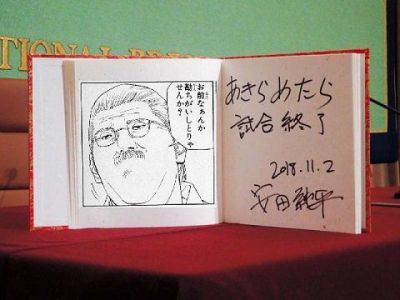 TIONAL PRE
お前なぁんか
勘ちがいしとりゃ
せんか?
あきらめたら
試合終了
2018.11.2
安田純平